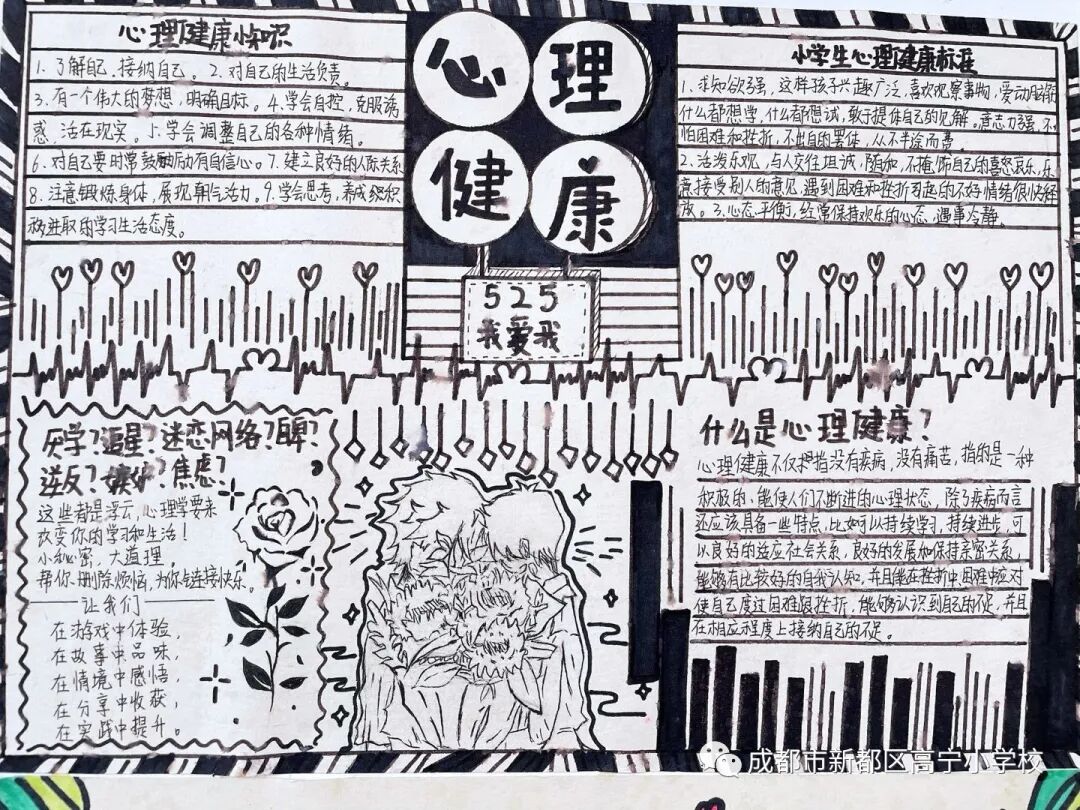 心理健康小知识
1、了解自己,接纳自己。2.对自己的生活负责。
3.有一个伟大的梦想,明确目标。4.学会自控,克服诱
惑,活在现实。5.学会调整自己的各种情绪。
6.对自己要时常鼓励励有自信心。7.建立良好的人际关系
8.注意锻炼身体,展现朝气活力。9.学会思考,养成积积
极进取的学习生活态度。
心理
健康
525
我爱我
小学生心理健康标准
1、求知欲强,这样孩子兴趣广泛,喜欢观察事物,爱动脑筋
什么都想学,什么都想试,敢于提体自己的见解。意志力强,不
怕困难和挫折,不出自的罢休,从不半途而费。
2.活泼乐观,与人交往坦诚,随和,不掩饰自己的喜怒哀乐,乐
意接受别人的意见,遇到困难和挫折引起的不好情绪很快释
放。3.心态平衡,经常保持欢乐的心态,遇事冷静。
厌学?追星?迷恋网络?自卑?
逆反?嫉妒?焦虑?
这些都是浮云,心理学要来
改变你的学习和生活!
小秘密,大道理。
帮你删除烦恼,为你连接快乐。
让我们
在游戏中体验,
在故事中品味,
在情境中感悟,
在分享中收获,
在实践中提升。
什么是心理健康?
心理健康不仅把指没有疾病,没有痛苦,指的是一种
积极的、能使人们不断进的心理状态,除了疾病而言
还应该具备一些特点,比如可以持续学习,持续进步,可
以良好的适应社会关系,良好的发展和保持亲密关系,
能够有比较好的自我认知,并且能在挫折中困难中应对
使自己度过困难跟挫折,能够认识到自己的不足,并且
在相应程度上接纳自己的不足。
成都市新都区高宁小学校